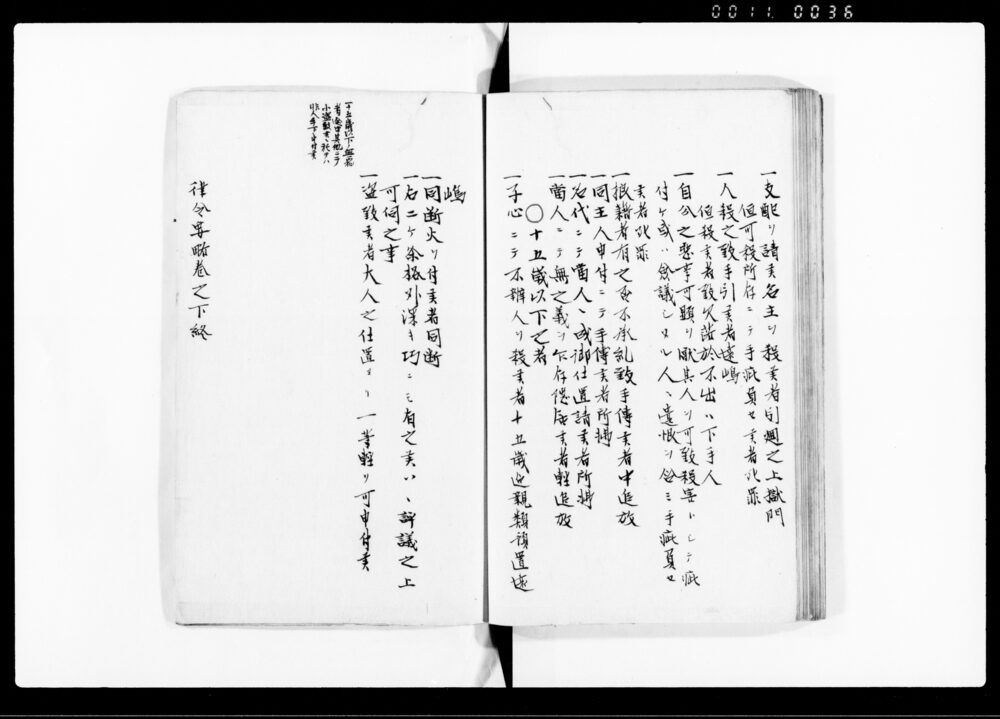 0011 0036
一支配ヲ請候名主ヲ殺候者引廻之上獄門
但可殺所存ニテ手疵負セ候者死罪
一人殺之致手引候者遠嶋
但殺候者致欠落於不出ハ下手人
一自分之悪事可顕ヲ厭其人ヲ可致殺害トシテ疵
付ケ或ハ僉議シタル人ヘ遺恨ヲ含ミ手疵負セ
候者死罪
一狼藉者有之否不承乱致手傳候者中追放
一同主人申付ニテ手傳候者所拂
一名代ニテ當人ヘ成御仕置請候者所拂
一當人ニテ無之義ヲ乍存隠居候者軽追放
〇十五歳以下之者
一子心ニテ不辨人ヲ殺候者十五歳迄親類預置遠
嶋
一同断火ヲ付候者同断
一右二ケ条格外深キ巧ニミ有之候ハヽ評議之上
可伺之事
一盗致候者大人之仕置ヨリ一等軽ク可申付候
一十五歳以下無宿
者途中其他ニテ
小盗致候ニ於テハ
非人手下ニ申付候
律令要略巻之下終